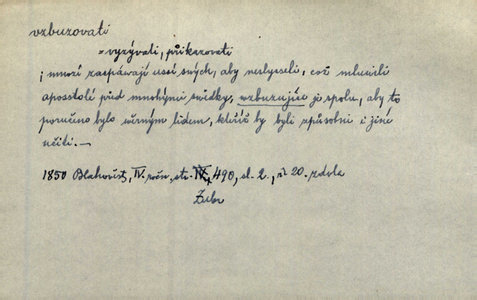 vzbuzovati
= vyzývati, přikazovati
; mnozí zacpávají ussi svých, aby neslysseli, což mluvili
aposstolé před mnohými svědky, vzbuzujíce je spolu, aby to
poručeno bylo věrným lidem, kteříž by byli způsobni i jiné
učiti.—
1850 Blahověst, IV. roč., str. 490, sl. 2., ř. 20. zdola